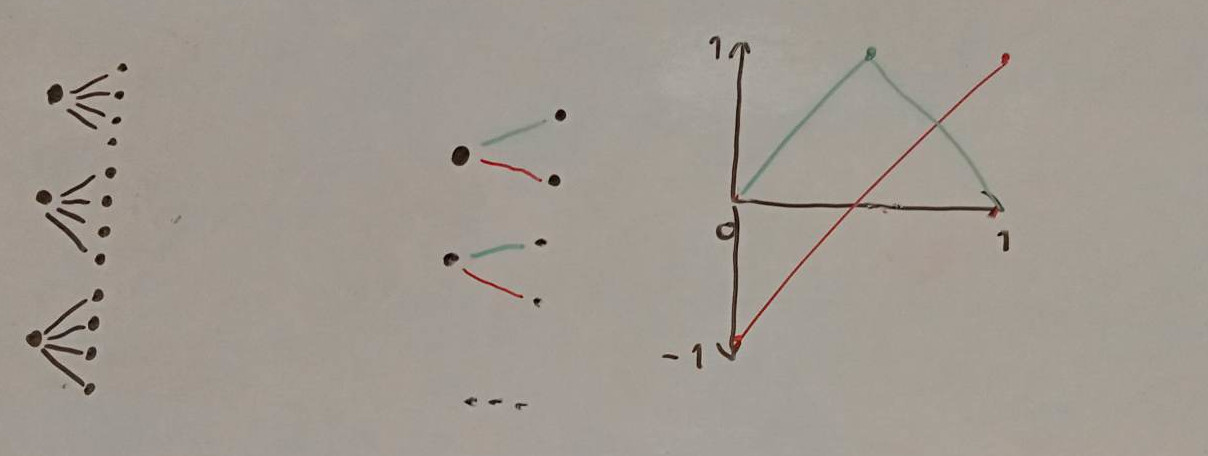 1
0
1
-1